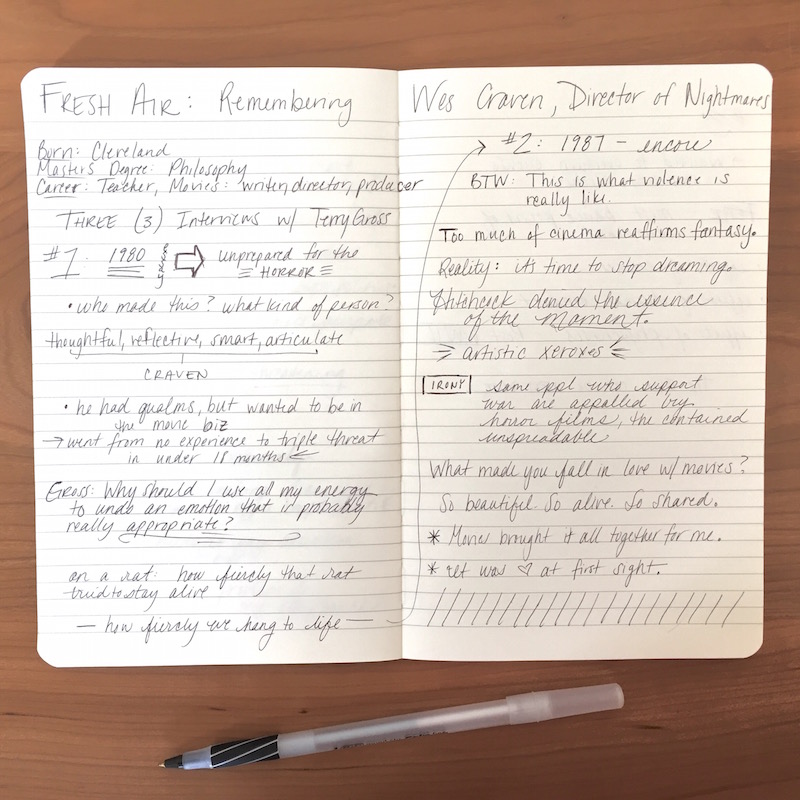 FRESH AIR: Remembering
Born: Cleveland
Masters Degree: Philosophy
Career: Teacher, Movies: writer, director, producer
THREE (3) Interviews w/ Terry Gross
#1: 1980 unprepared for the
HORROR
• who made this? what kind of person?
thoughtful, reflective, smart, articulate
CRAVEN
• he had qualms, but wanted to be in
the movie biz
→ went from no experience to triple threat
in under 18 months ←
Gross: Why should I use all my energy
to undo an emotion that is probably
really appropriate?
on a rat: how fiercly that rat
tried to stay alive
— how fiercly we hang to life —
Wes Craven, Director of Nightmares
#2: 1987 – encore
BTW: This is what violence is
really like.
Too much of cinema reaffirms fantasy.
Reality: it's time to stop dreaming.
Hitchcick denied the essence
of the moment.
artistic xeroxes
IRONY same ppl who support
war are appalled by
horror films, the contained
unspreadable
What made you fall in love w/ movies?
So beautiful. So alive. So shared.
* Movies brought it all together for me.
* It was ♡ at first sight.